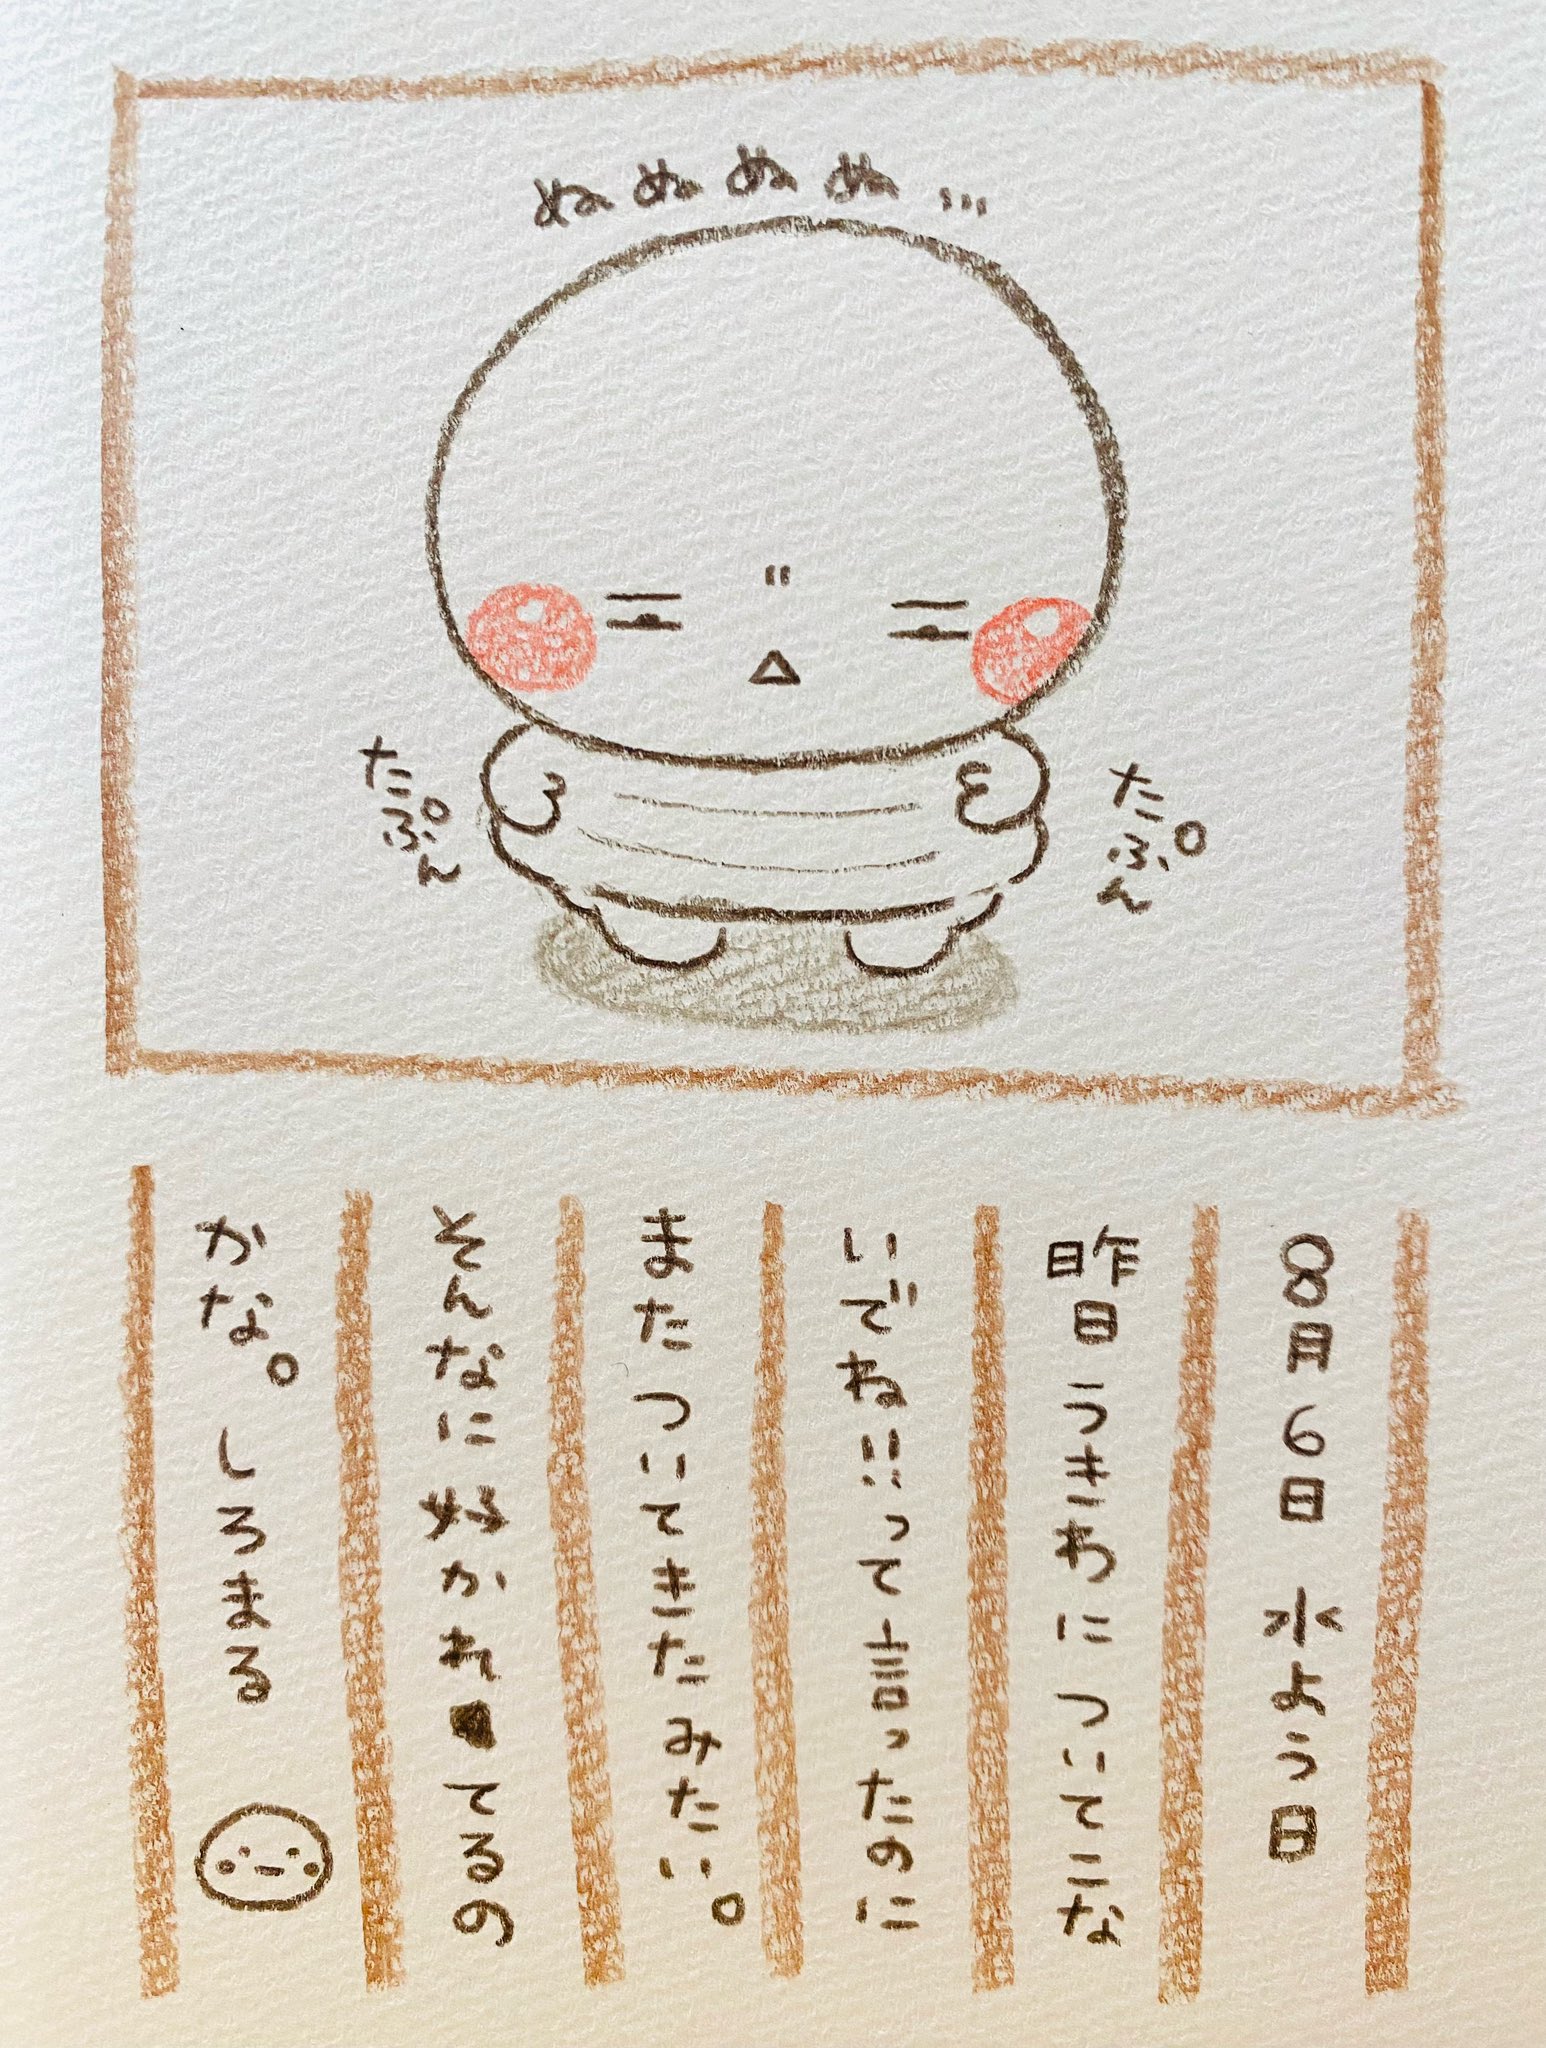 ぬぬぬぬ…
たぷん
たぷん
8月6日 水よう日
昨日うきわについてこな
いでね!!って言ったのに
またついてきたみたい。
そんなに好かれてるの
かな。しろまる